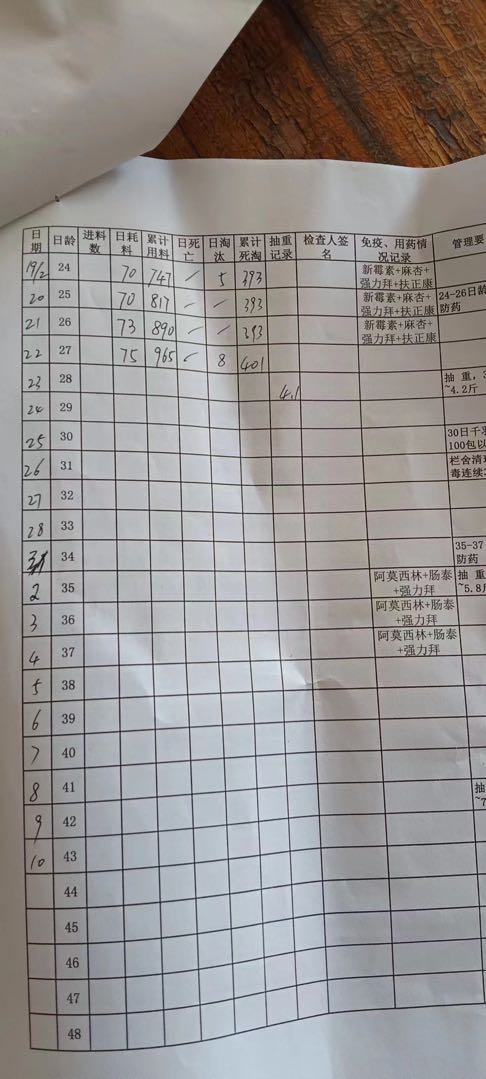 日期 日龄 进料数 日耗料 累计用料 日死亡 日淘汰 累计死淘 抽重记录 检查人签名 免疫、用药情况记录 管理要
19/2 24 70 747 - 5 393 新霉素+麻杏+强力拜+扶正康
20 25 70 817 - - 393 新霉素+麻杏+强力拜+扶正康 24-26日龄 防药
21 26 73 890 - - 393 新霉素+麻杏+强力拜+扶正康
22 27 75 965 - 8 401
23 28 4.1 抽重，3 ~4.2斤
24 29
25 30 30日千羽 100包以
26 31 栏舍清 毒连续
27 32
28 33
3/1 34 35-37 防药
2 35 阿莫西林+肠泰+强力拜 抽重 ~5.8斤
3 36 阿莫西林+肠泰+强力拜
4 37 阿莫西林+肠泰+强力拜
5 38
6 39
7 40
8 41 抽 ~7
9 42
10 43
44
45
46
47
48